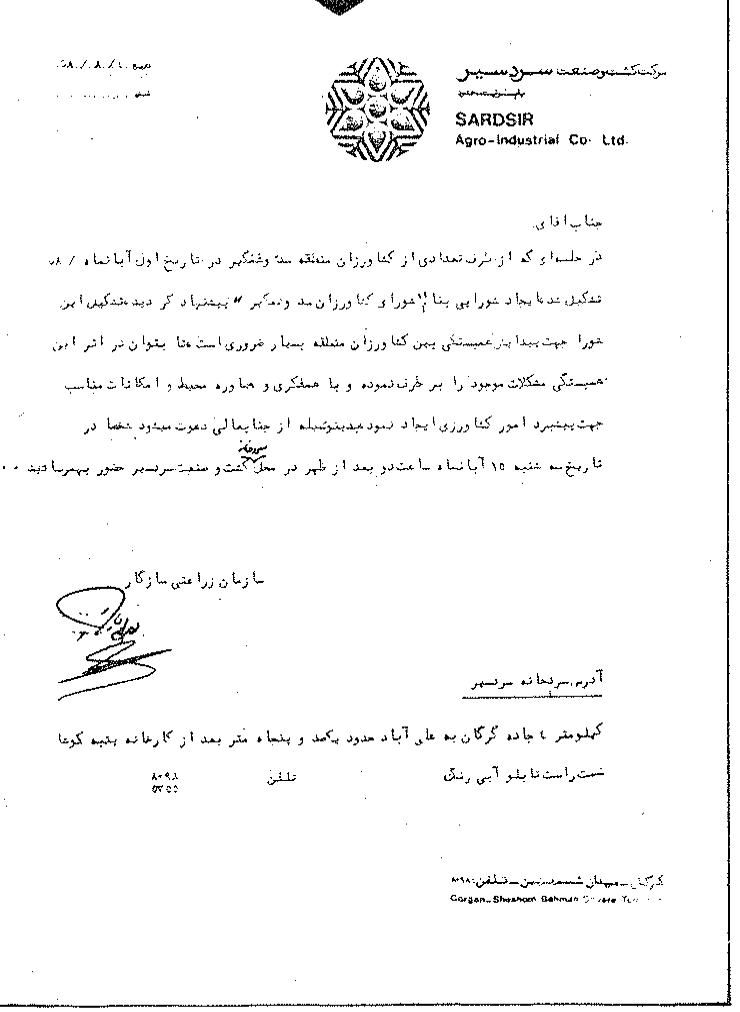 شرکت کشت و صنعت سردسیر
با مسئولیت محدود
SARDSIR
Agro-Industrial Co. Ltd.
جناب آقای
در جلسه‌ای که از طرف تعدادی از کشاورزان منطقه سد وشمگیر در تاریخ اول آبانماه / ۵۸
تشکیل شد ایجاد شورایی بنام "شورای کشاورزان سد وشمگیر" پیشنهاد گردید تشکیل این
شورا جهت پیدایش همبستگی بین کشاورزان منطقه بسیار ضروری است تا بتوان در اثر این
همبستگی مشکلات موجود را بر طرف نموده و با همفکری و مشاوره محیط و امکانات مناسب
جهت پیشبرد امور کشاورزی ایجاد نمود بدینوسیله از جنابعالی دعوت میشود شخصا در
تاریخ سه شنبه ۱۵ آبانماه ساعت دو بعد از ظهر در محل سردخانه کشت و صنعت سردسیر حضور بهمرسانید ۰۰
سازمان زراعتی سازگار
آدرس سردخانه سردسیر
کیلومتر ٤ جاده گرگان به علی آباد حدود یکصد و پنجاه متر بعد از کارخانه پنبه کوشا
سمت راست تابلو آبی رنگ
تلفن
۸۰۹۸
گرگان - میدان ششم بهمن - تلفن: ۸۰۹۸
Gorgan - Sheshom Bahman Square